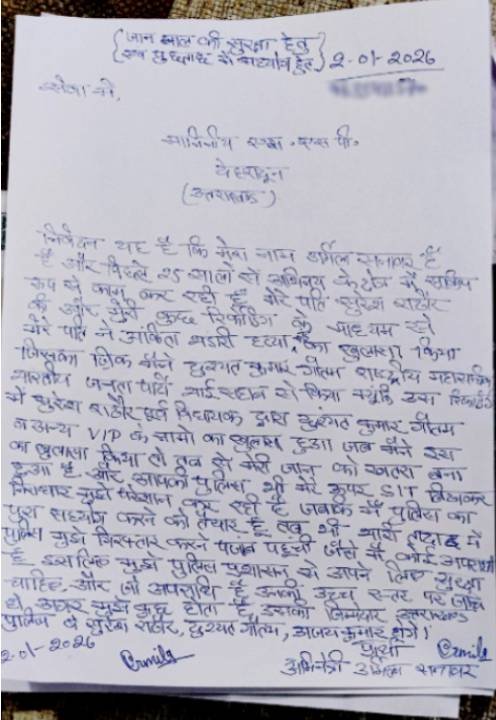 (जान माल की सुरक्षा हेतु
एवं पूछताछ में सहयोग हेतु) 2-01-2026
सेवा में,
माननीय एस॰ एस॰ पी॰
देहरादून
(उत्तराखण्ड)
निवेदन यह है कि मेरा नाम उर्मिला सनावर है
है और पिछले 25 सालों से अभिनय के क्षेत्र में सक्रिय
रूप से काम कर रही हूँ मेरे पति सुरेश राठौर
की और मेरी कुछ रिकॉर्डिंग के माध्यम से
मेरे पति ने अंकिता भंडारी हत्या का खुलासा किया
जिसका जिक्र मैंने दुष्यंत कुमार गौतम राष्ट्रीय महासचिव
भारतीय जनता पार्टी भाई साहब से किया क्यूंकि उस रिकॉर्डिंग
में सुरेश राठौर पूर्व विधायक द्वारा दुष्यंत कुमार गौतम
व अन्य VIP के नामों का खुलासा हुआ। जब मैंने इस
का खुलासा किया तो तब से मेरी जान को खतरा बना
हुआ है और आपकी पुलिस भी मेरे ऊपर SIT बिठाकर
निराधार मुझे परेशान कर रही है जबकि मैं पुलिस का
पूरा सहयोग करने को तैयार हूँ तब भी भारी तादाद में
पुलिस मुझे गिरफ्तार करने पहुंची जैसे मैं कोई अपराधी
हूँ इसलिए मुझे पुलिस प्रशासन से अपने लिए सुरक्षा
चाहिए और जो अपराधी है उनकी उच्च स्तर पर जाँच
हो अगर मुझे कुछ होता है उसका जिम्मेदार उत्तराखण्ड
पुलिस व सुरेश राठौर, दुष्यंत गौतम, अजय कुमार होंगे।
2-01-2026 Urmila प्रार्थी Urmila
अभिनेत्री उर्मिला सनावर